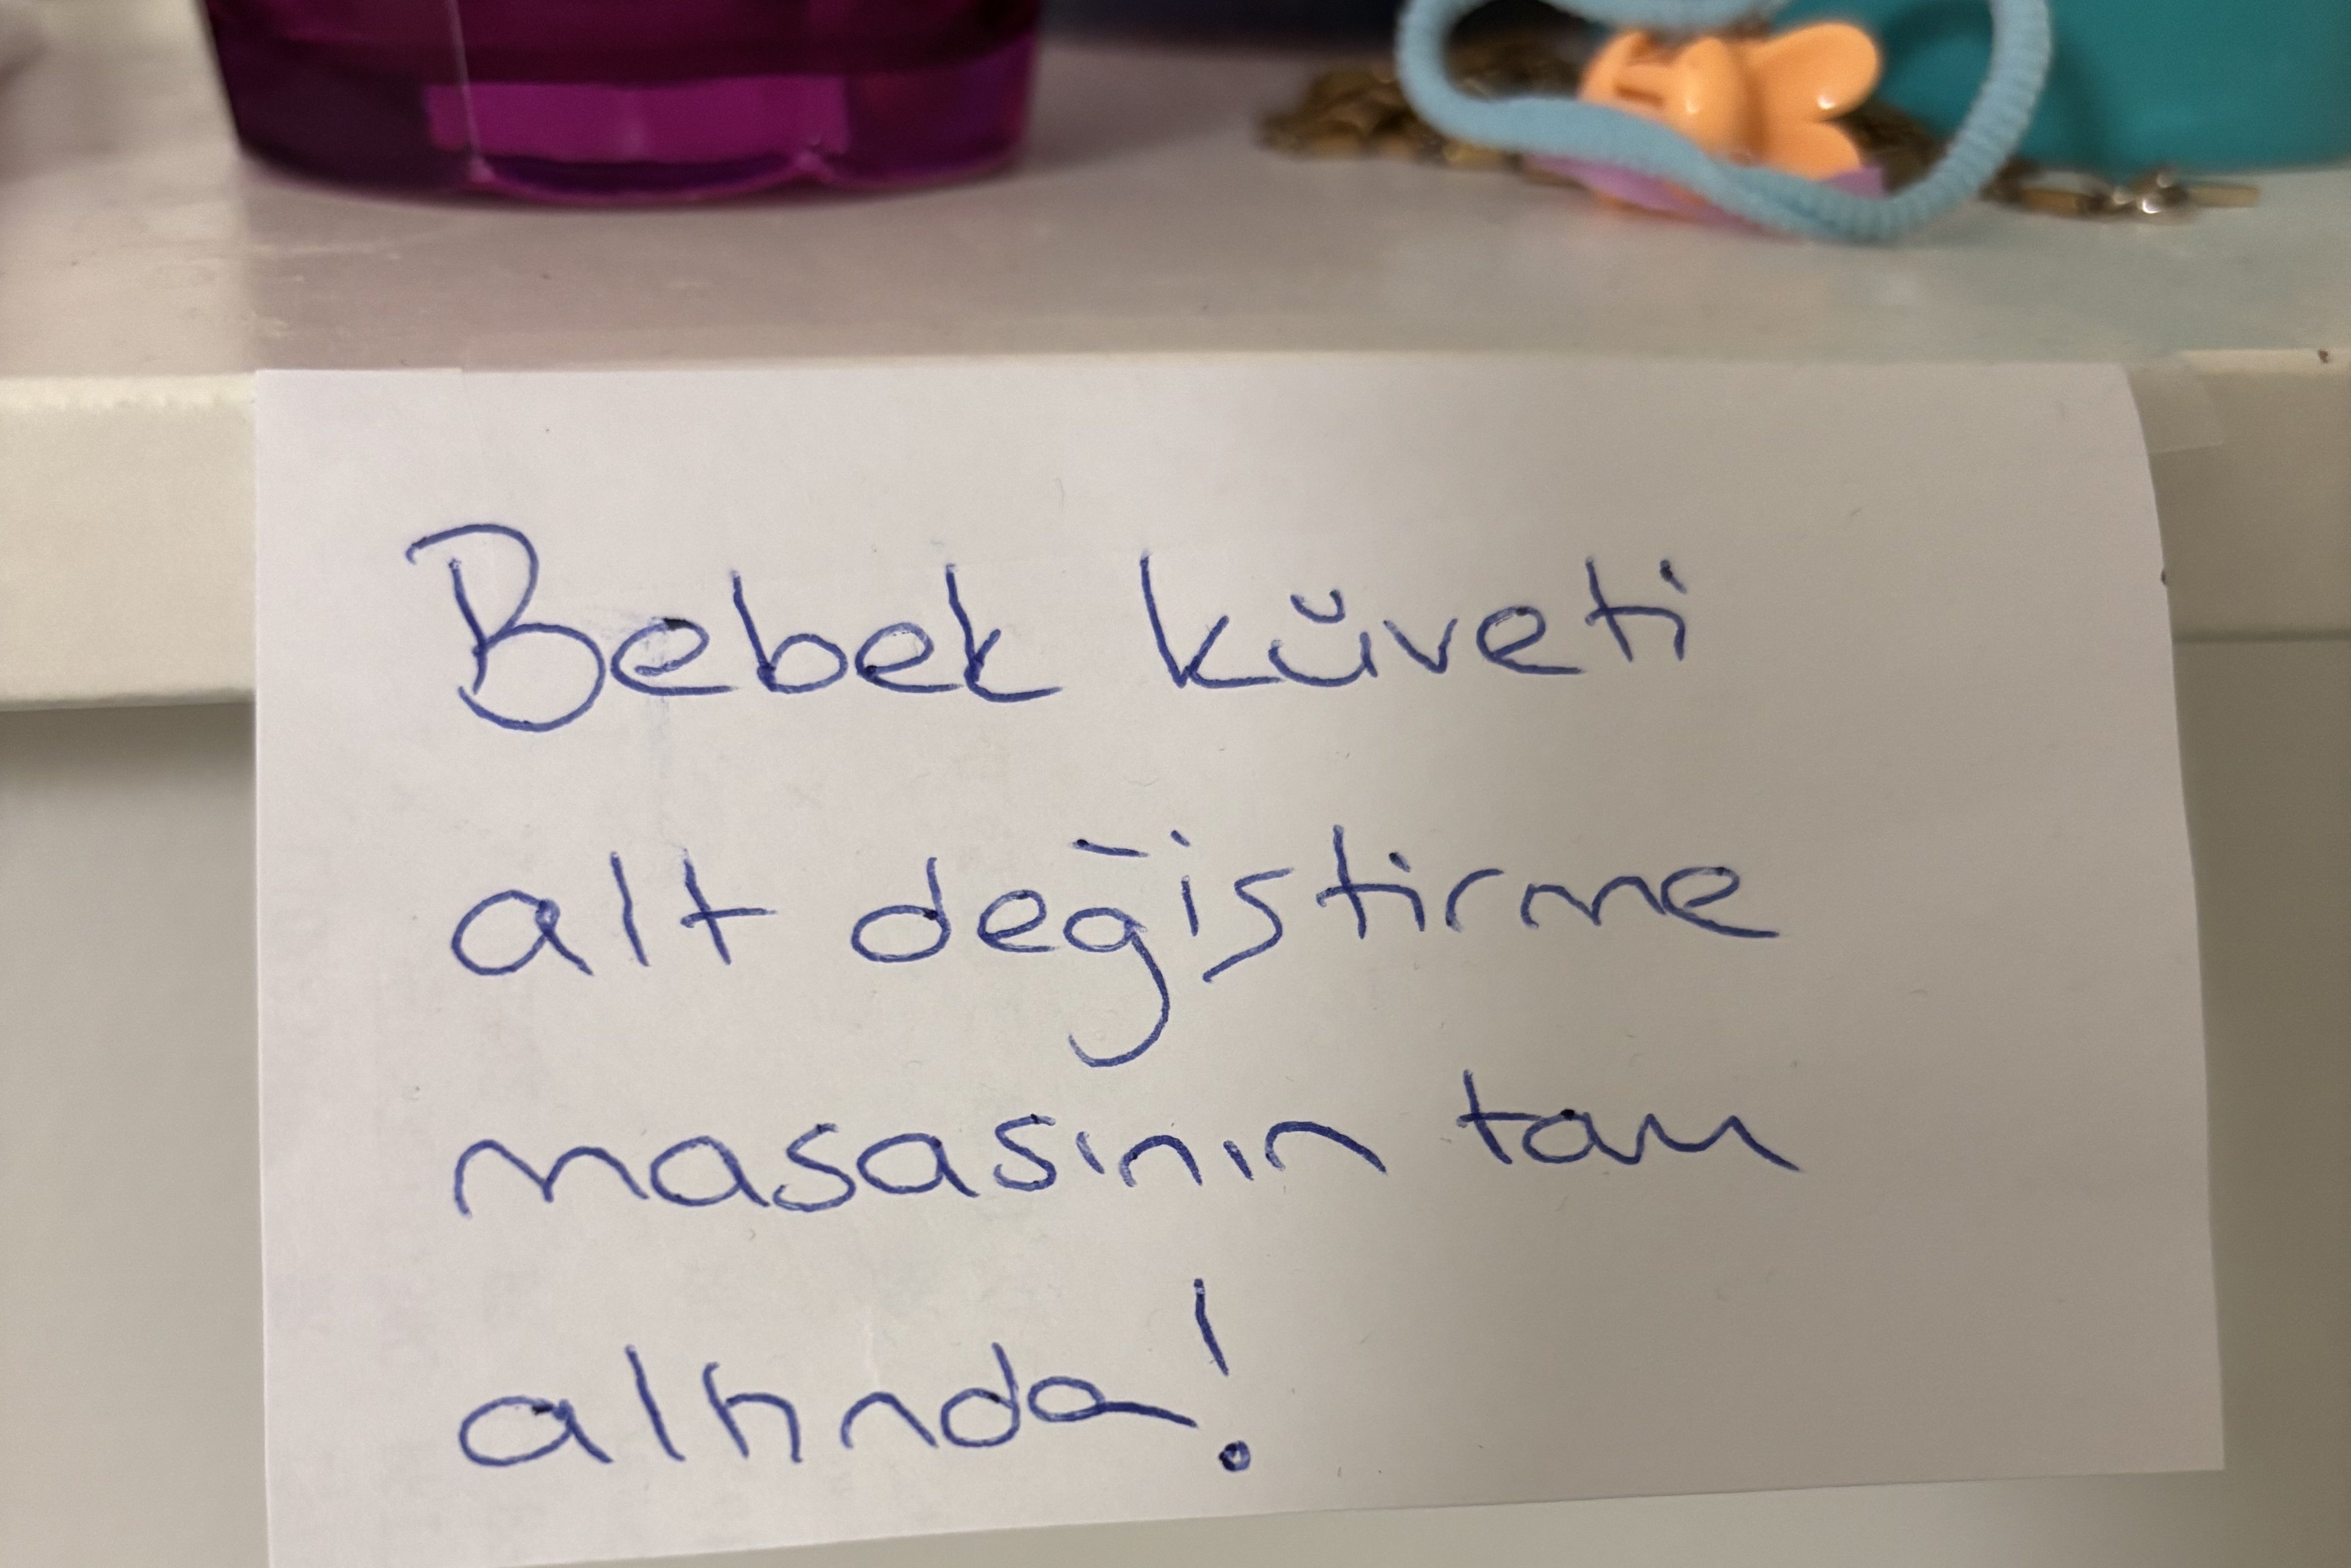 Bebek küveti
alt değiştirme
masasının tam
altında!